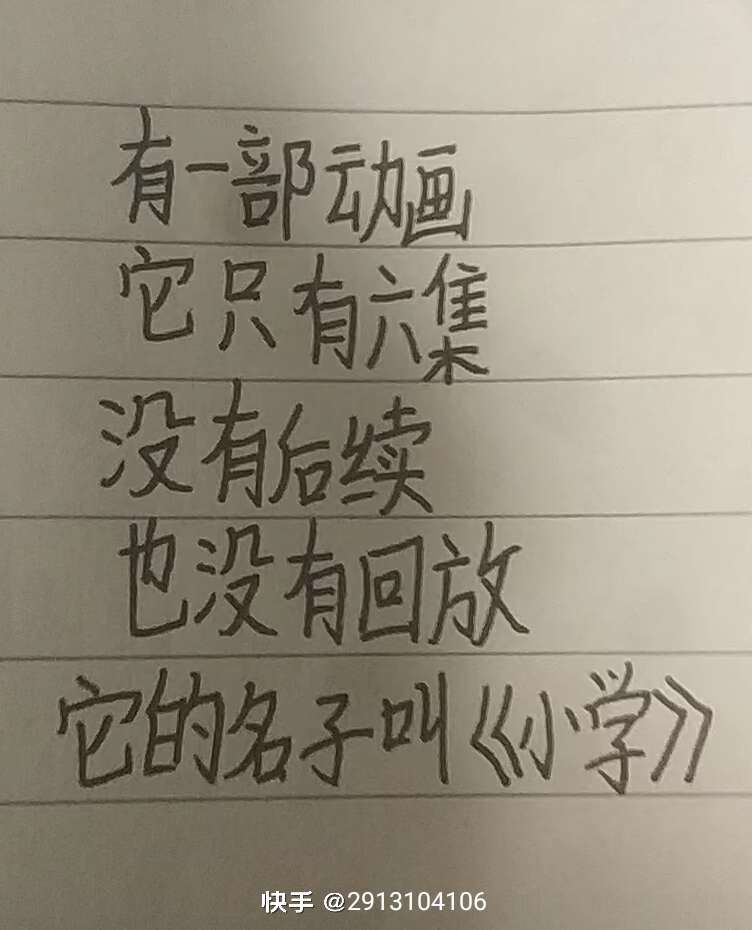 有一部动画
它只有六集
没有后续
也没有回放
它的名子叫《小学》
快手 @2913104106